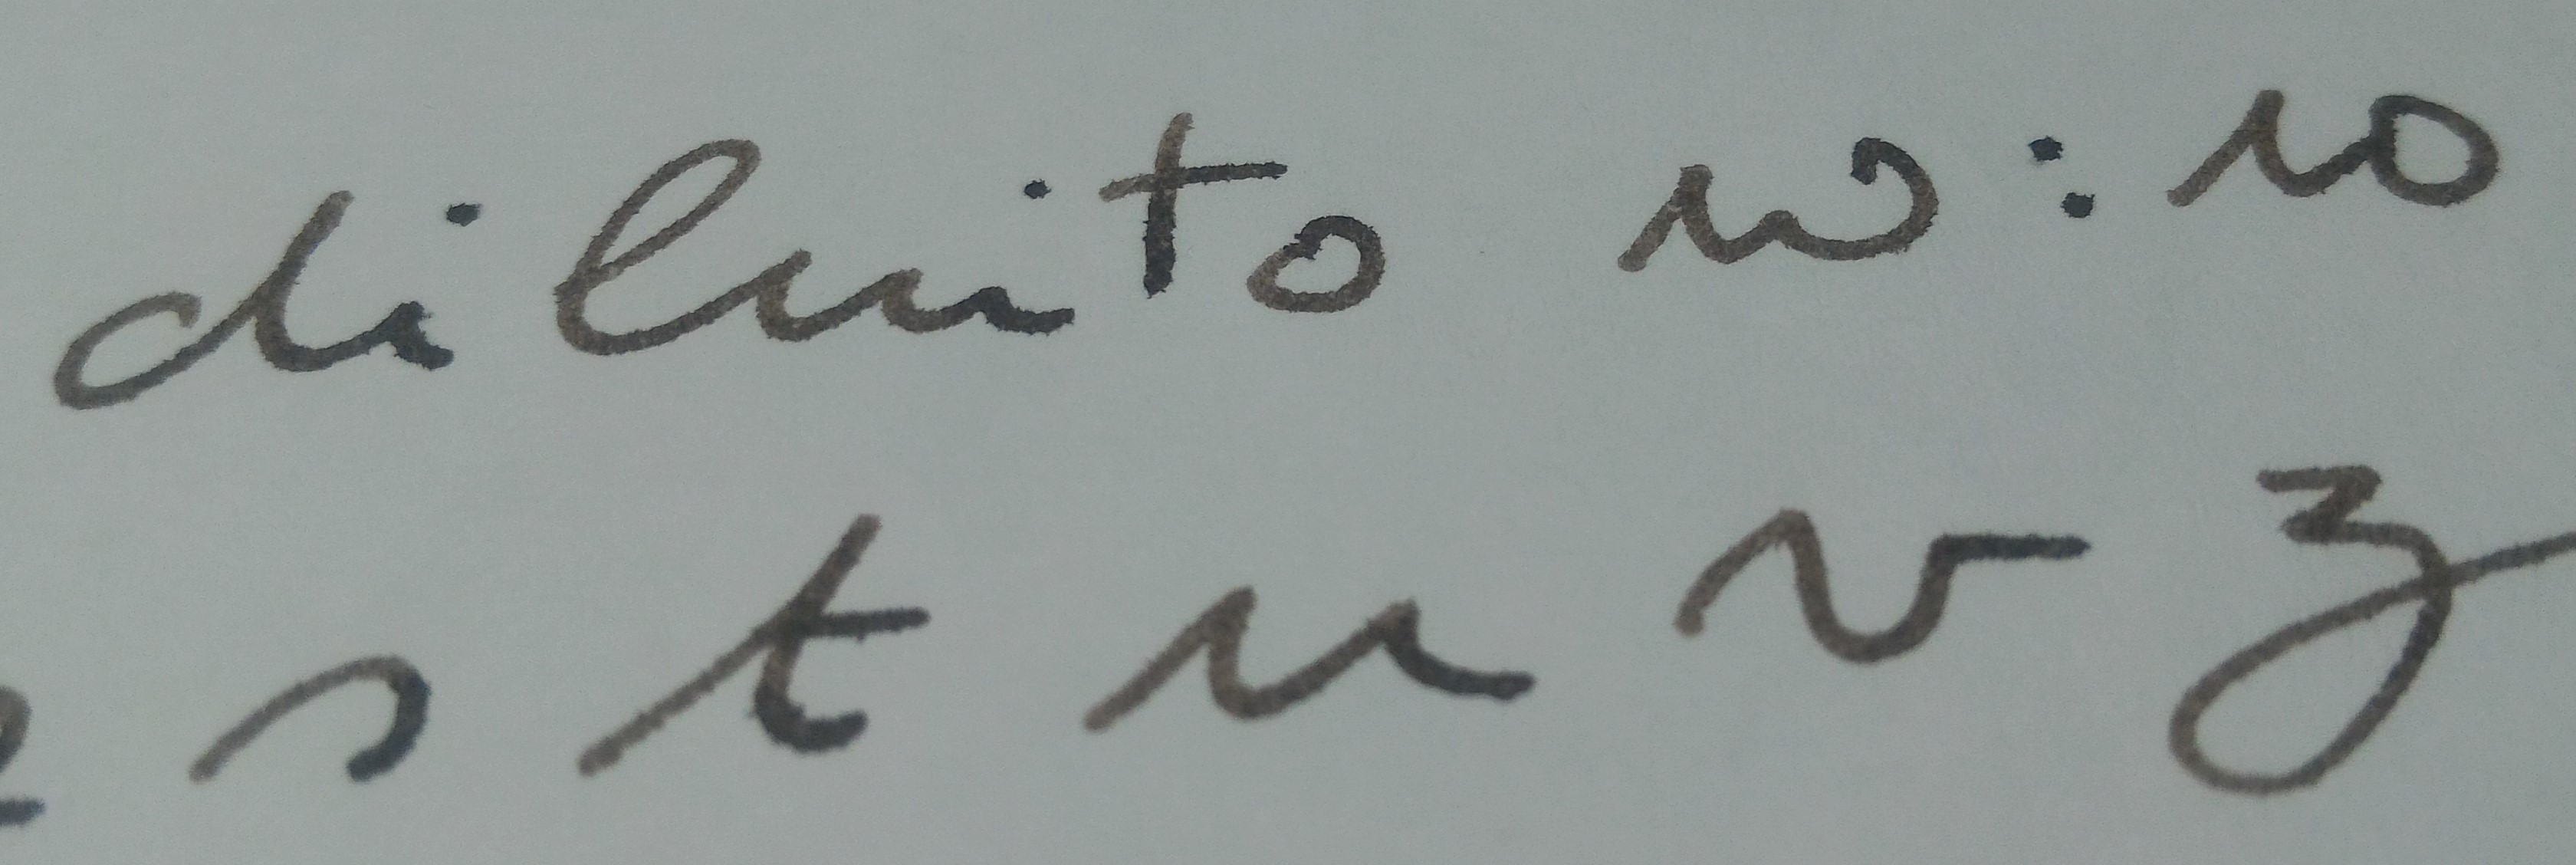 diluito 10:10
s t u v z